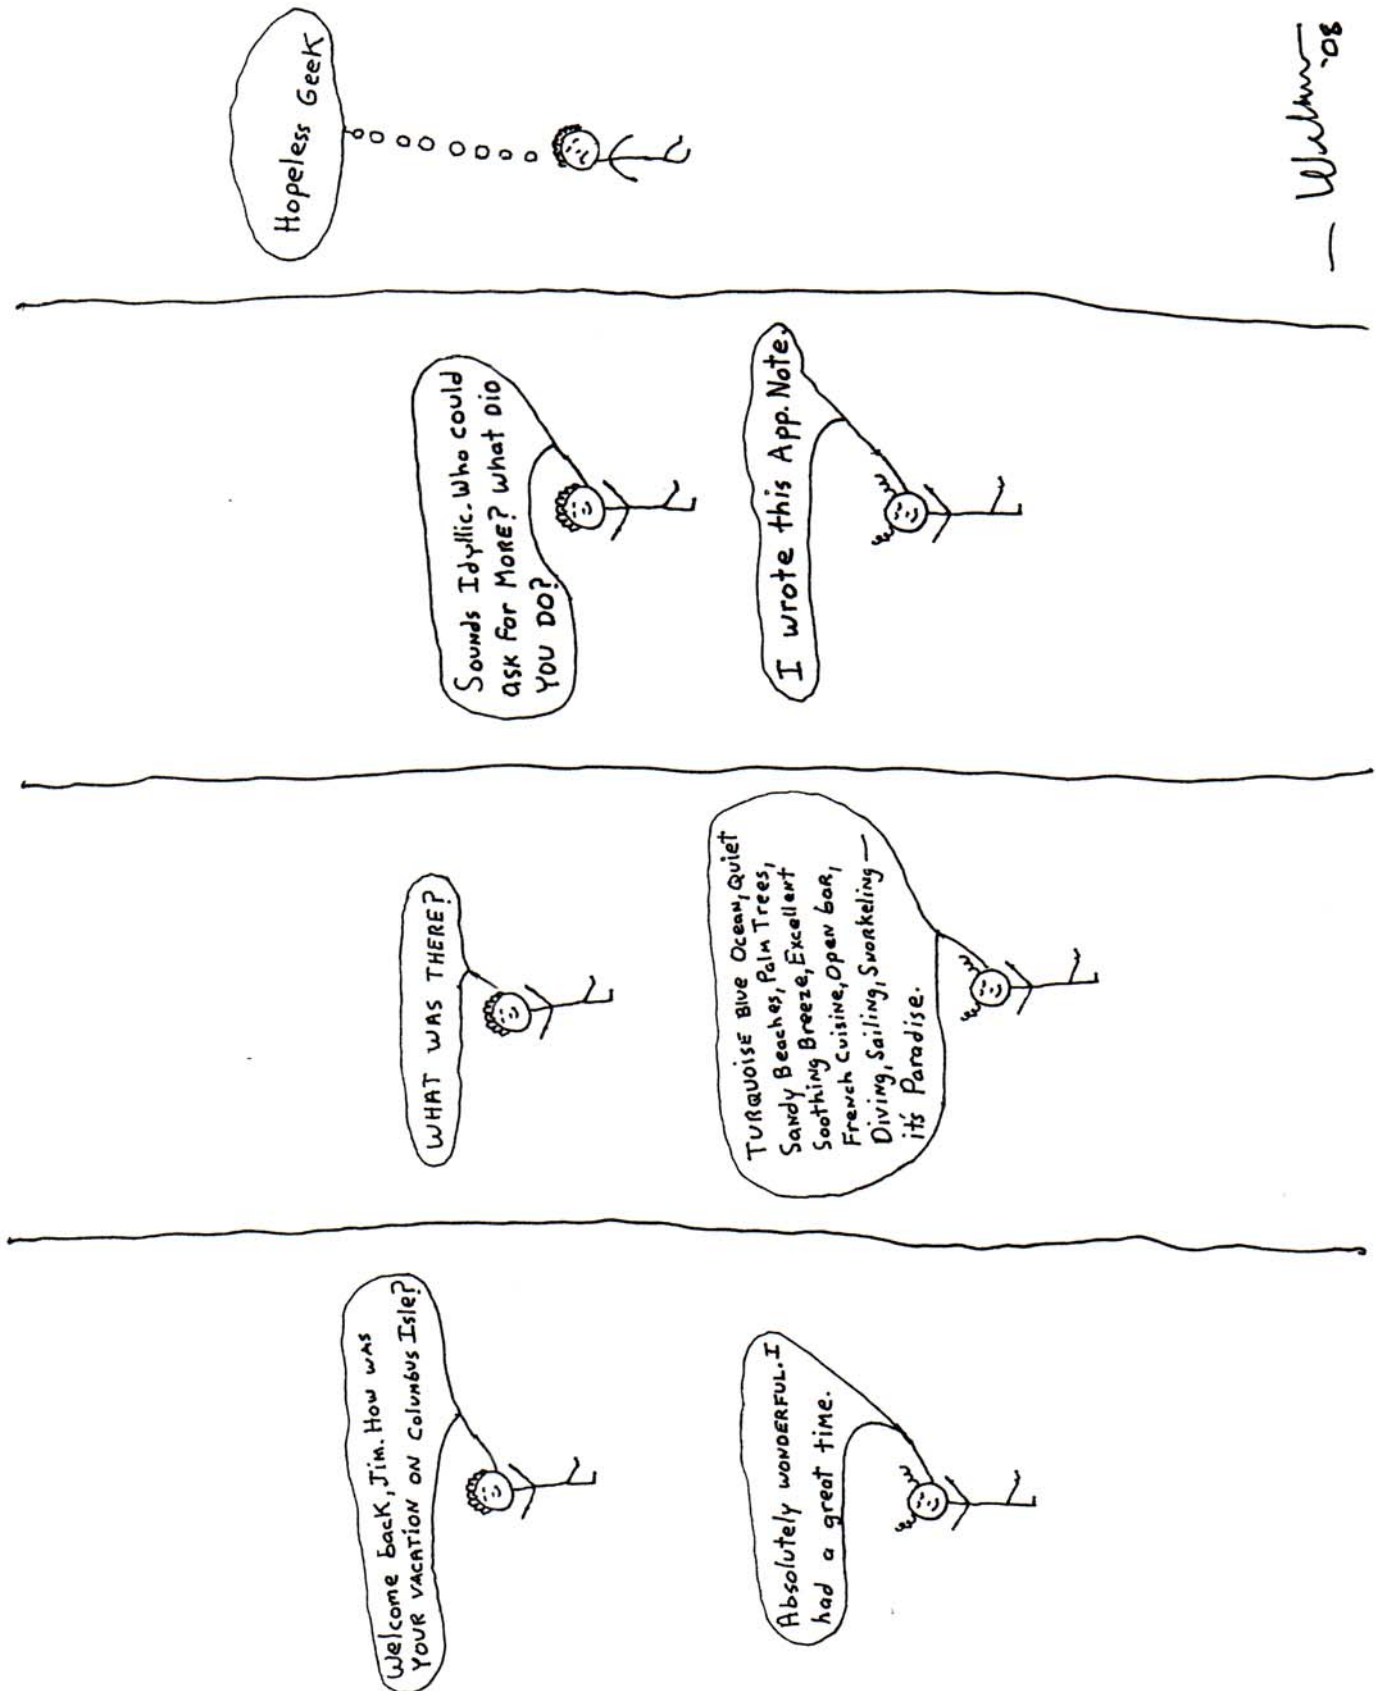 Welcome back, Jim. How was
YOUR VACATION ON COLUMBUS Isle?
Absolutely WONDERFUL. I
had a great time.
WHAT WAS THERE?
TURQUOISE Blue Ocean, Quiet
Sandy Beaches, Palm Trees,
Soothing Breeze, Excellent
French Cuisine, Open bar,
Diving, Sailing, Snorkeling —
it's Paradise.
Sounds Idyllic. Who could
ask for MORE? What DID
YOU DO?
I wrote this App. Note.
Hopeless Geek
'08